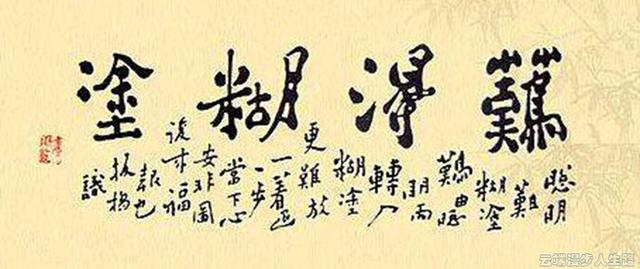 難得糊塗
聰明
難
糊塗
難由聰
明而
轉入
糊塗
更難放
一著退
一步
當下心
安非圖
後來福
報也
板橋
識
云端漫步人生路